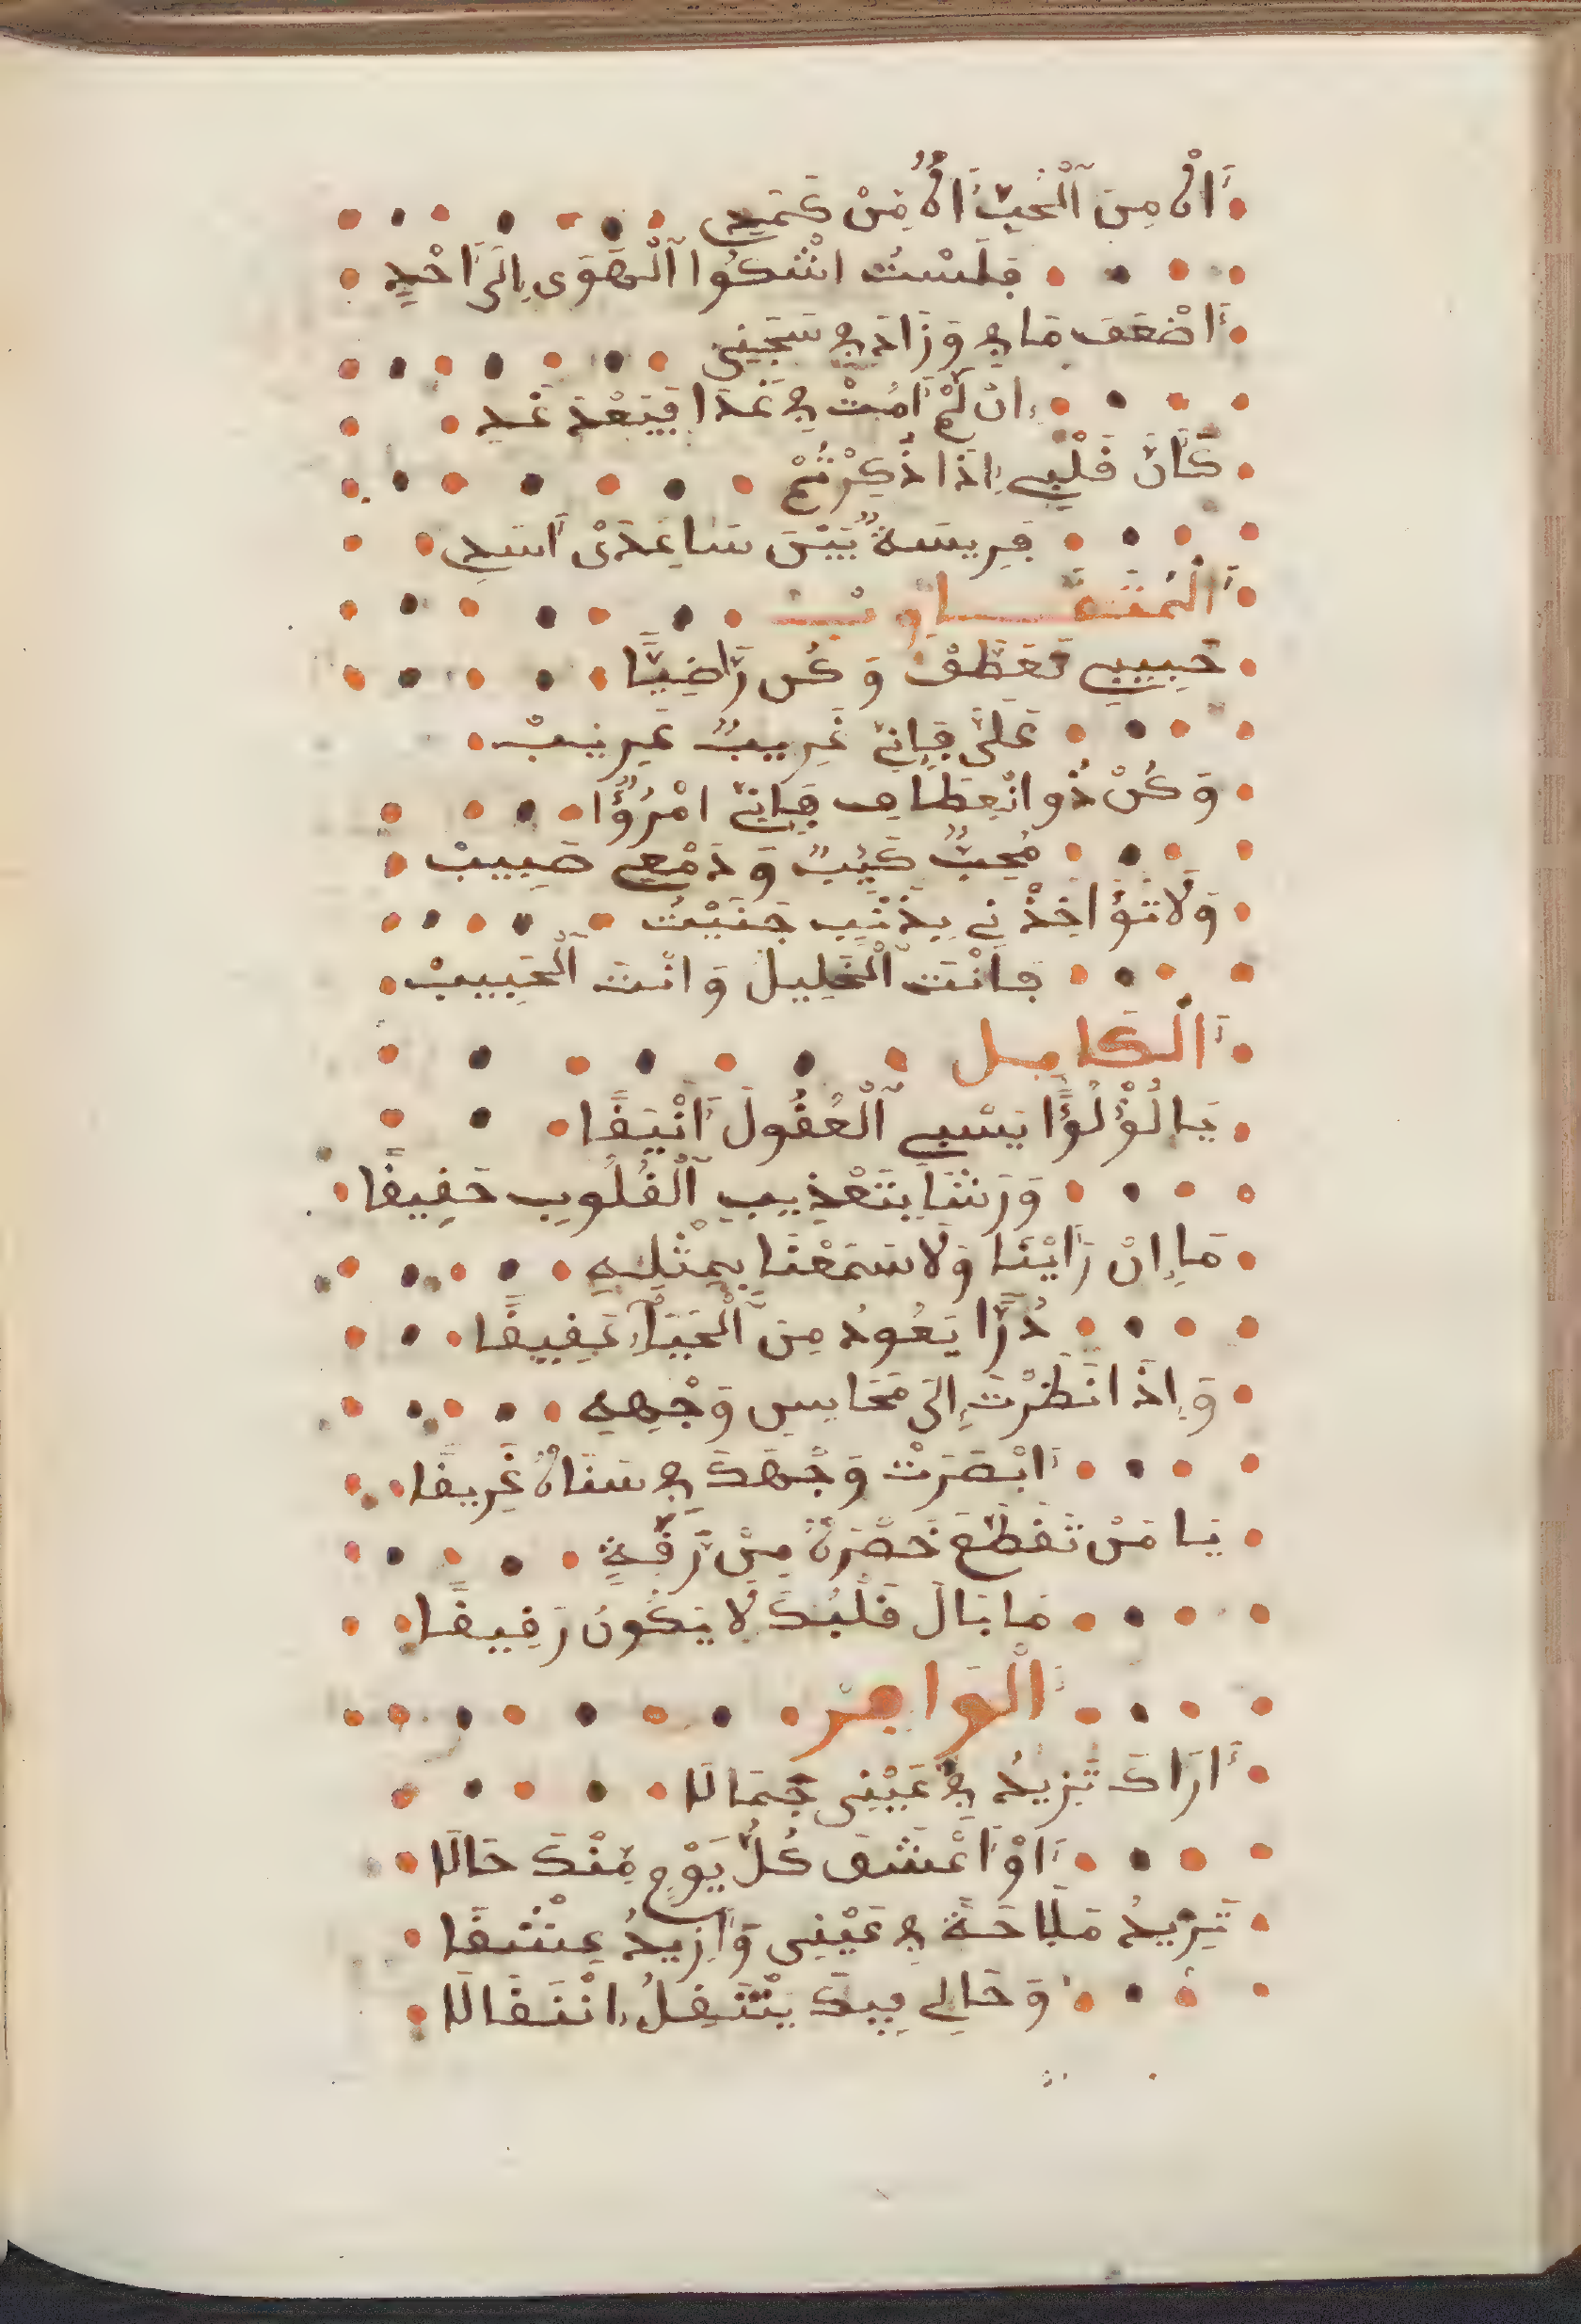 أَاهٌ مِنَ ٱلْحُبِّ أَاهٌ مِّنْ كَمَدِي
فَلَسْتُ اشْكُوا ٱلْهَوَى إِلَىٰ أَحَدٍ
أَضْعَفَ مَا بِي وَزَادَ بِي شَجَنِي
إِنْ لَّمْ أَمُتْ فِي غَدَا فَبَعْدَ غَدِ
كَأَنَّ قَلْبِي إِذَا ذُكِرْتُمْ
فَرِيسَةٌ بَيْنَ سَاعِدَيْ أَسَدِ
أَلْمُتَقَارِبْ
حَبِيبِي تَعَطَّفْ وَكُن رَّاضِيًّا
عَلَىَّ فَإِنِّي غَرِيبٌ غَرِيبْ
وَكُنْ ذُو انْعِطَافِ فَإِنِّي امْرُؤٌا
مُحِبٌّ كَئِيبٌ وَدَمْعِي صَبِيبْ
وَلَا تُؤَاخِذْنِي بِذَنْبِ جَنَيْتُ
فَأَنْتَ ٱلْخَلِيلُ وَانْتَ ٱلْحَبِيبْ
أَلْكَامِل
يَا لُؤْلُؤًا يَسْبِي ٱلْعُقُولَ أَنْيَقًا
وَرَشَا بِتَعْذِيبِ ٱلْقُلُوبِ حَقِيقًا
مَا إِنْ رَأَيْنَا وَلَا سَمَعْنَا بِمِثْلِهِ
دُرًّا يَعُودُ مِنَ ٱلْحَيَاءِ عَقِيقًا
وَإِذَا نَظَرْتَ إِلَى مَحَاسِنِ وَجْهِهِ
أَبْصَرْتَ وَجْهَكَ فِي سَنَاهُ غَرِيقًا
يَا مَنْ تَقَطَّعَ خَصْرُهُ مِنْ رَّقَّةٍ
مَا بَالُ قَلْبُكَ لَا يَكُونُ رَقِيقًا
أَلْوَافِرْ
أَرَاكَ تَزِيدُ فِي عَيْنِي جَمَالَا
أَوْ أَعْشَقَ كُلَّ يَوْمٍ مِّنْكَ حَالَا
تَزِيدُ مَلَاحَةً فِي عَيْنِي وَأَزِيدُ عِشْقًا
وَحَالِي فِيكَ يَنْتَقِلُ إِنْتَقَالَا